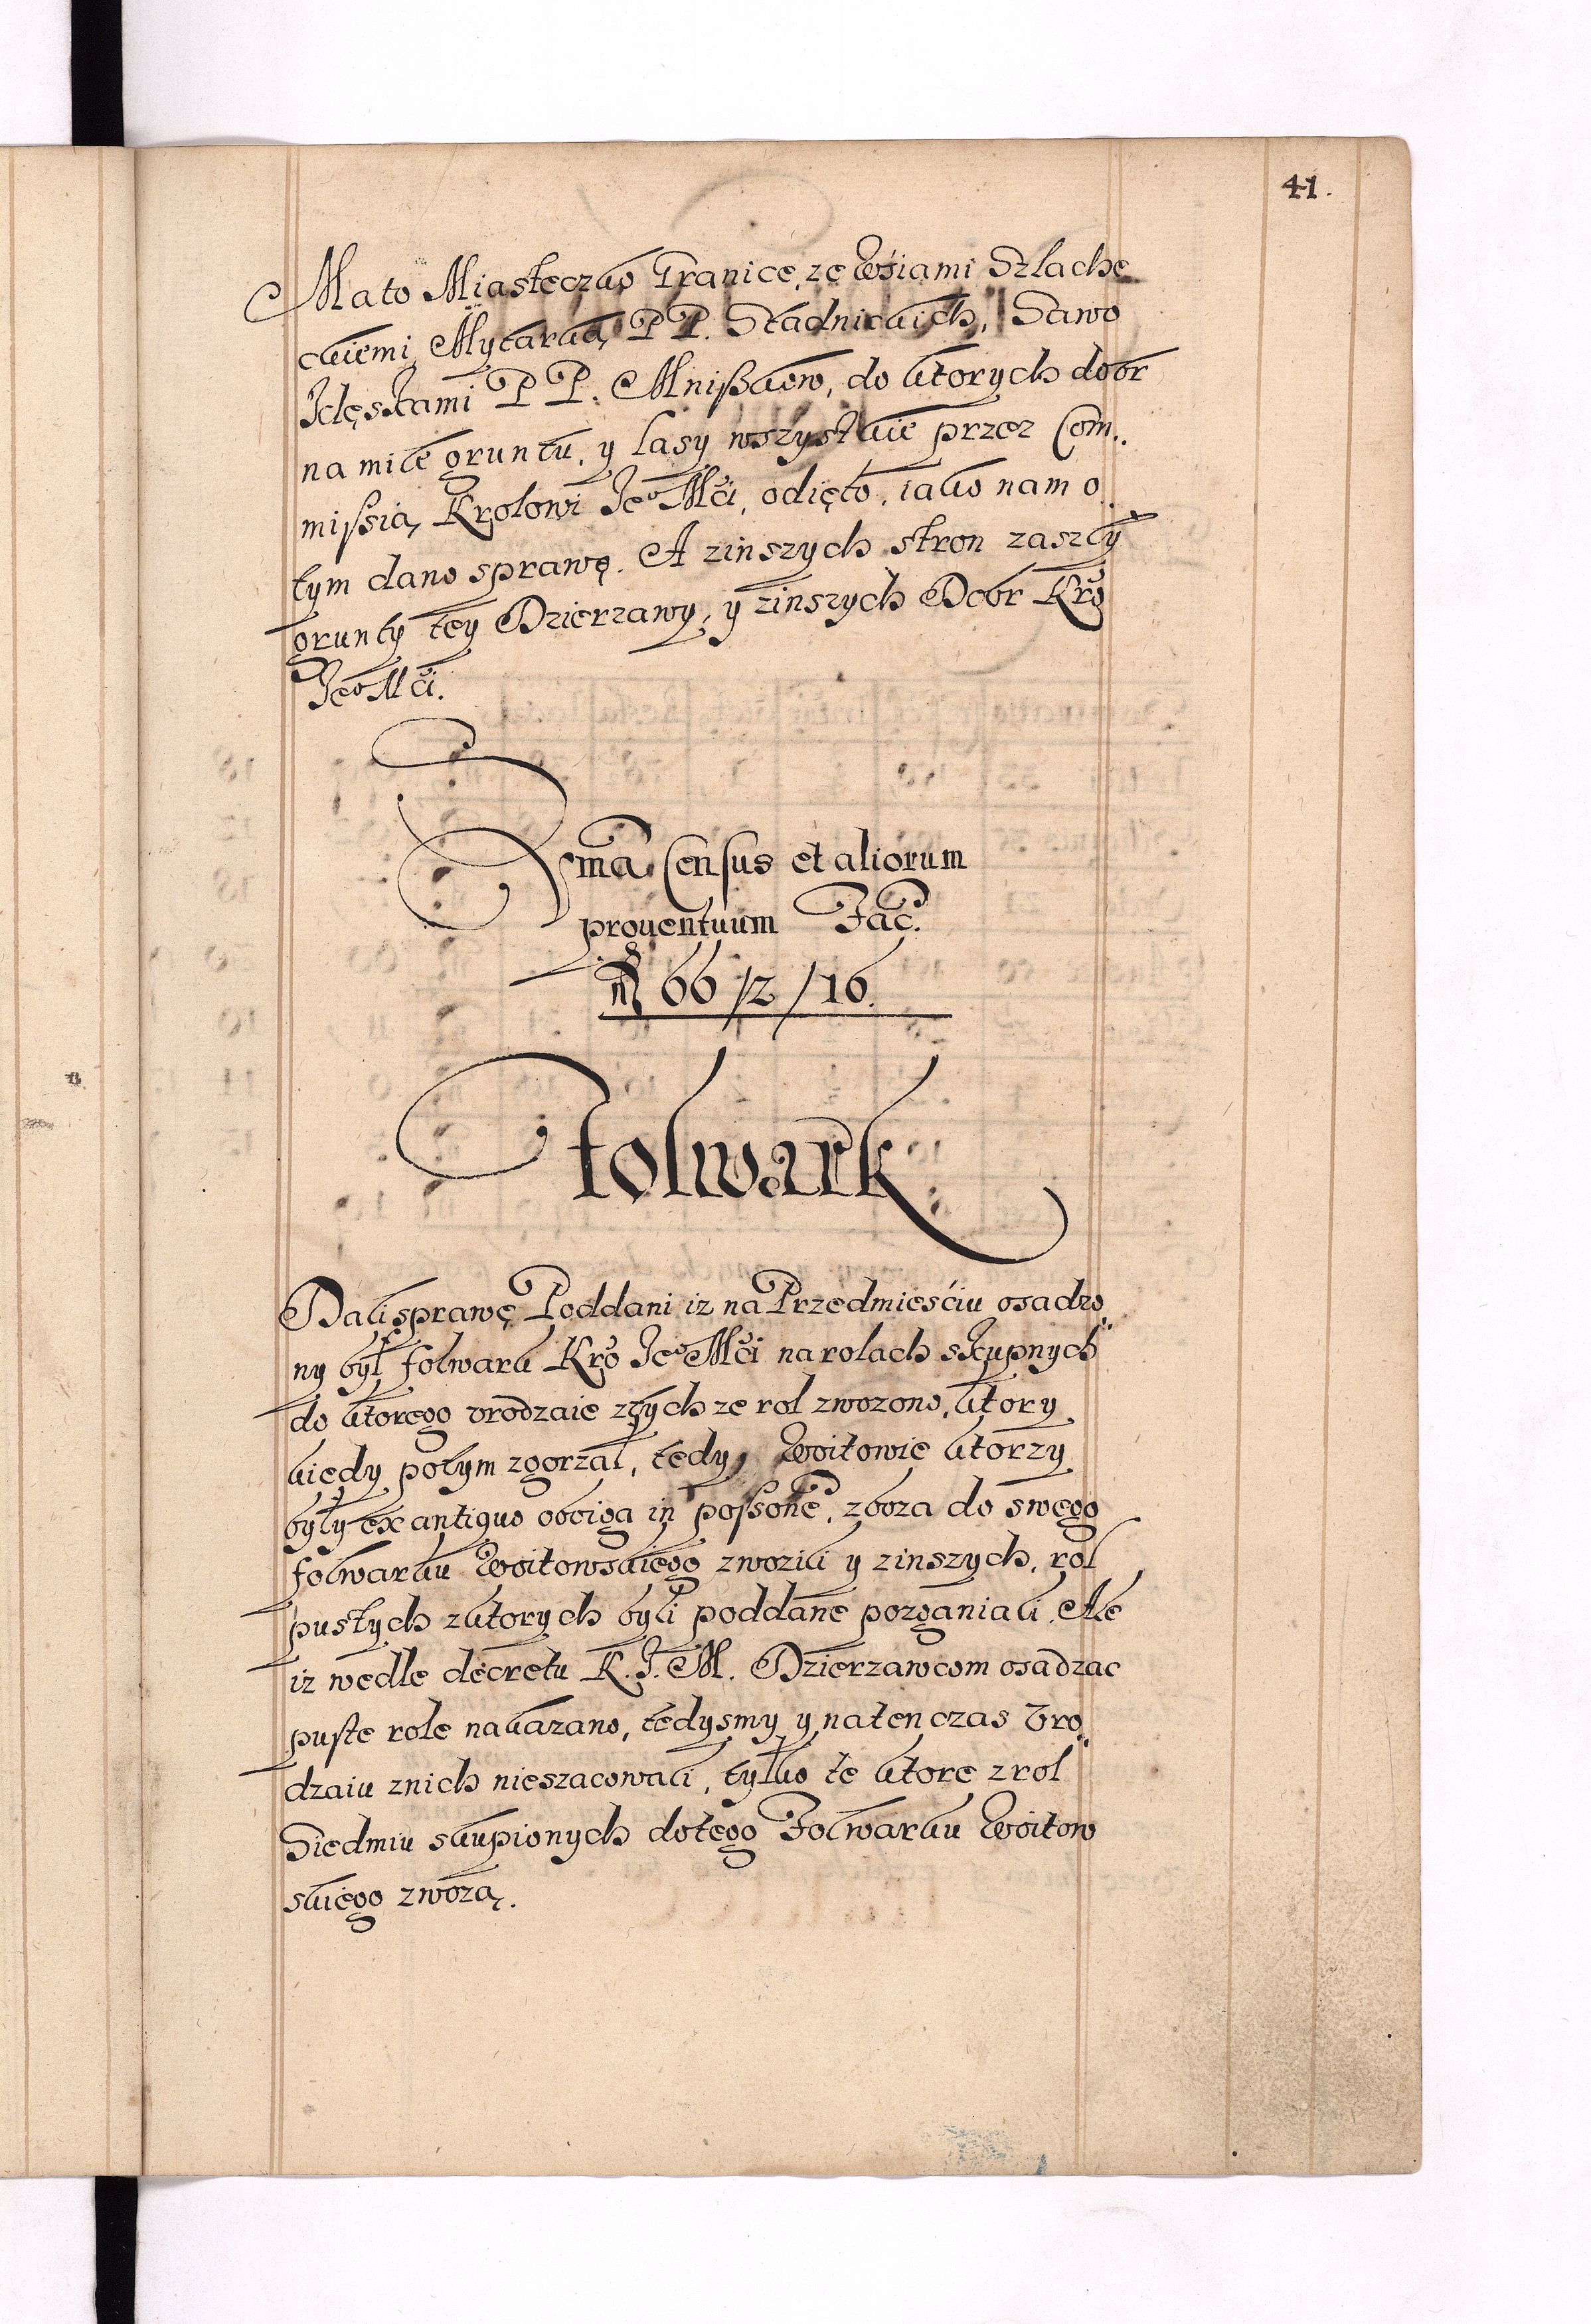 41.
Ma to Miasteczko Granice, ze Wsiami Szlache
ckiemi Mytarką PP. Stadnickich, Dawo
Idęskami PP. Mnißkow, do ktorych dobr
na mile gruntu, y lasy wszystkie przez Com..
mißią, Krolowi Jeo Mći, odięto, iako nam o
tym dano sprawę. A zinszych stron zaszły
grunty tey Dzierzawy, y zinszych Dobr Kro
Jeo Mći.
Sma Census et aliorum
prouentuum Fac.
fl 66/2/16.
folwark
Dali sprawę Poddani iz na Przedmieśćiu osadzo
ny był folwark Kro Jeo Mći na rolach skupnych
do ktorego vrodzaie ztych ze rol zwozono, ktory
kiedy potym zgorzał, tedy Woitowie ktorzy
były ex antiquo oboiga in poßone, zboza do swego
folwarku Woitowskiego zwozili y zinszych, rol
pustych zktorych byli poddane pozganiali. Ale
iz wedle decretu K. J. M. Dzierzawcom osadzac
puste role nakazano, tedysmy y naten czas Vro
dzaiu znich nieszacowali, tylko te ktore z rol
Siedmiu skupionych do tego Folwarku Woitow
skiego zwozą.